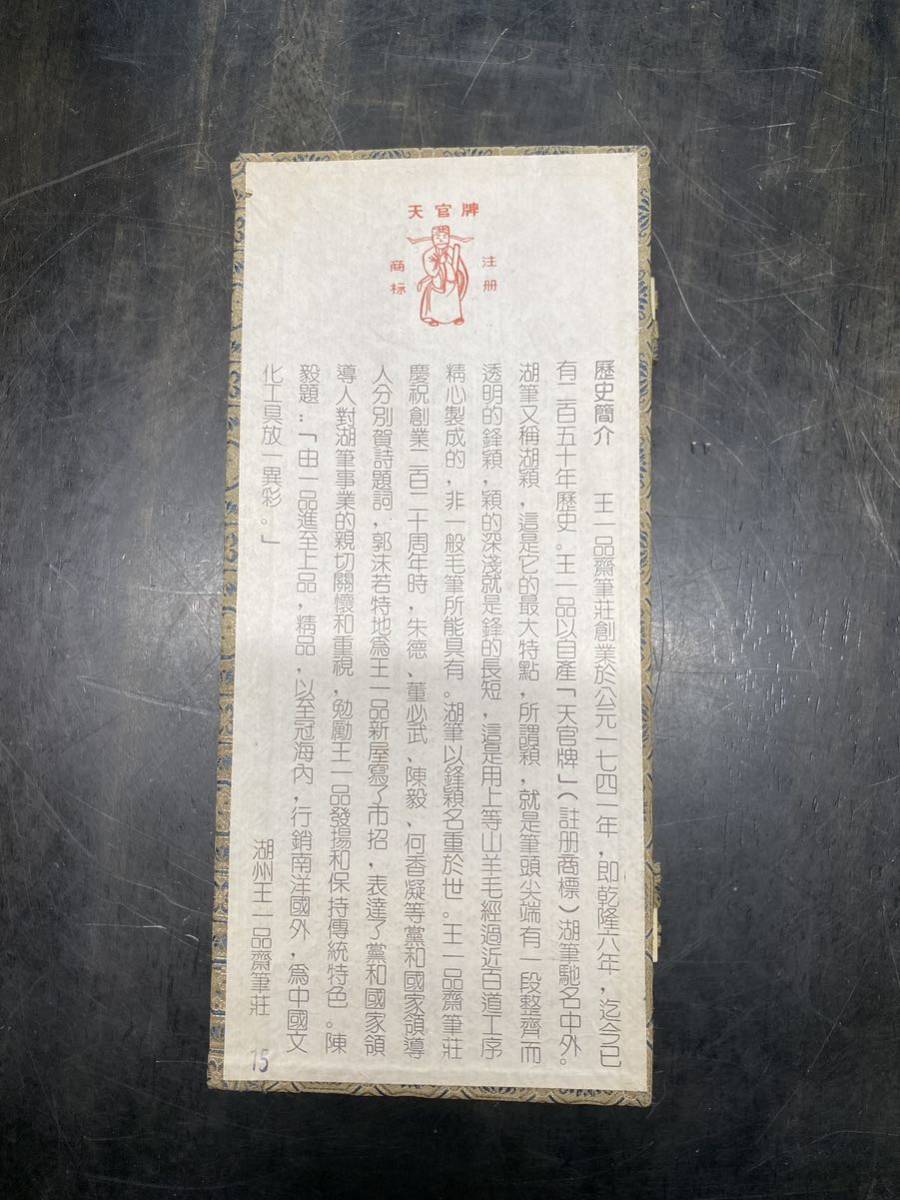 天官牌
注册
商标
歷史簡介　王一品齋筆莊創業於公元一七四一年，即乾隆六年，迄今已
有二百五十年歷史。王一品以自產「天官牌」（註册商標）湖筆馳名中外。
湖筆又稱湖穎，這是它的最大特點，所謂穎，就是筆頭尖端有一段整齊而
透明的鋒穎，穎的深淺就是鋒的長短，這是用上等山羊毛經過近百道工序
精心製成的，非一般毛筆所能具有。湖筆以鋒穎名重於世。王一品齋筆莊
慶祝創業二百二十周年時，朱德、董必武、陳毅、何香凝等黨和國家領導
人分別賀詩題詞，郭沫若特地爲王一品新屋寫了市招，表達了黨和國家領
導人對湖筆事業的親切關懷和重視，勉勵王一品發揚和保持傳統特色。陳
毅題：「由一品進至上品，精品，以至冠海內，行銷南洋國外，爲中國文
化工具放一異彩。」
湖州王一品齋筆莊
15